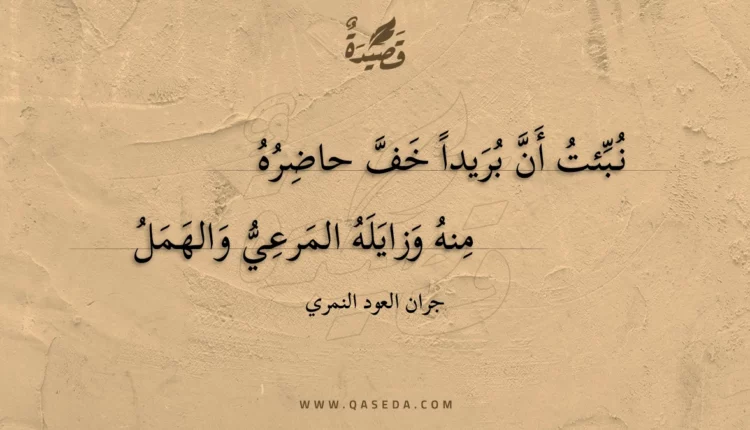 قَصِيدَةٌ
نُبِّئتُ أَنَّ بُرَيداً خَفَّ حاضِرُهُ
مِنهُ وَزايَلَهُ المَرعِيُّ وَالهَمَلُ
جران العود النمري
WWW.QASEDA.COM